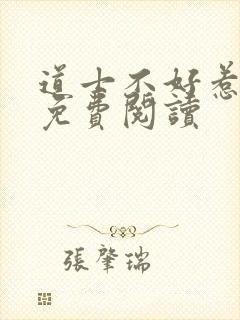 道士不好惹
免費閱讀
張肇瑞